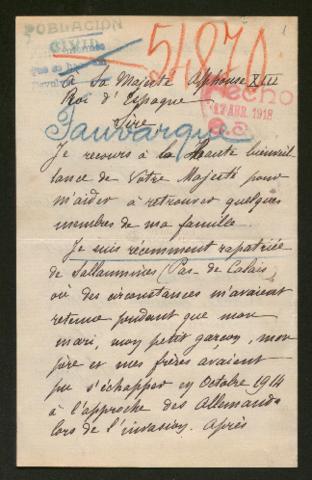 POBLACION
CIVIL
54870
A Sa Majesté Alphonse XIII
Roi d'Espagne
Hecho
17 ABR. 1918
Sire,
Fauvarque
Je recours à la Haute bienveil
lance de Votre Majesté pour
m'aider à retrouver quelques
membres de ma famille.
Je suis récemment rapatriée
de Sallaumines (Pas-de Calais)
où des circonstances m'avaient
retenue pendant que mon
mari, mon petit garçon, mon
père et mes frères avaient
pu s'échapper en Octobre 1914
à l'approche des Allemands
lors de l'invasion. Après